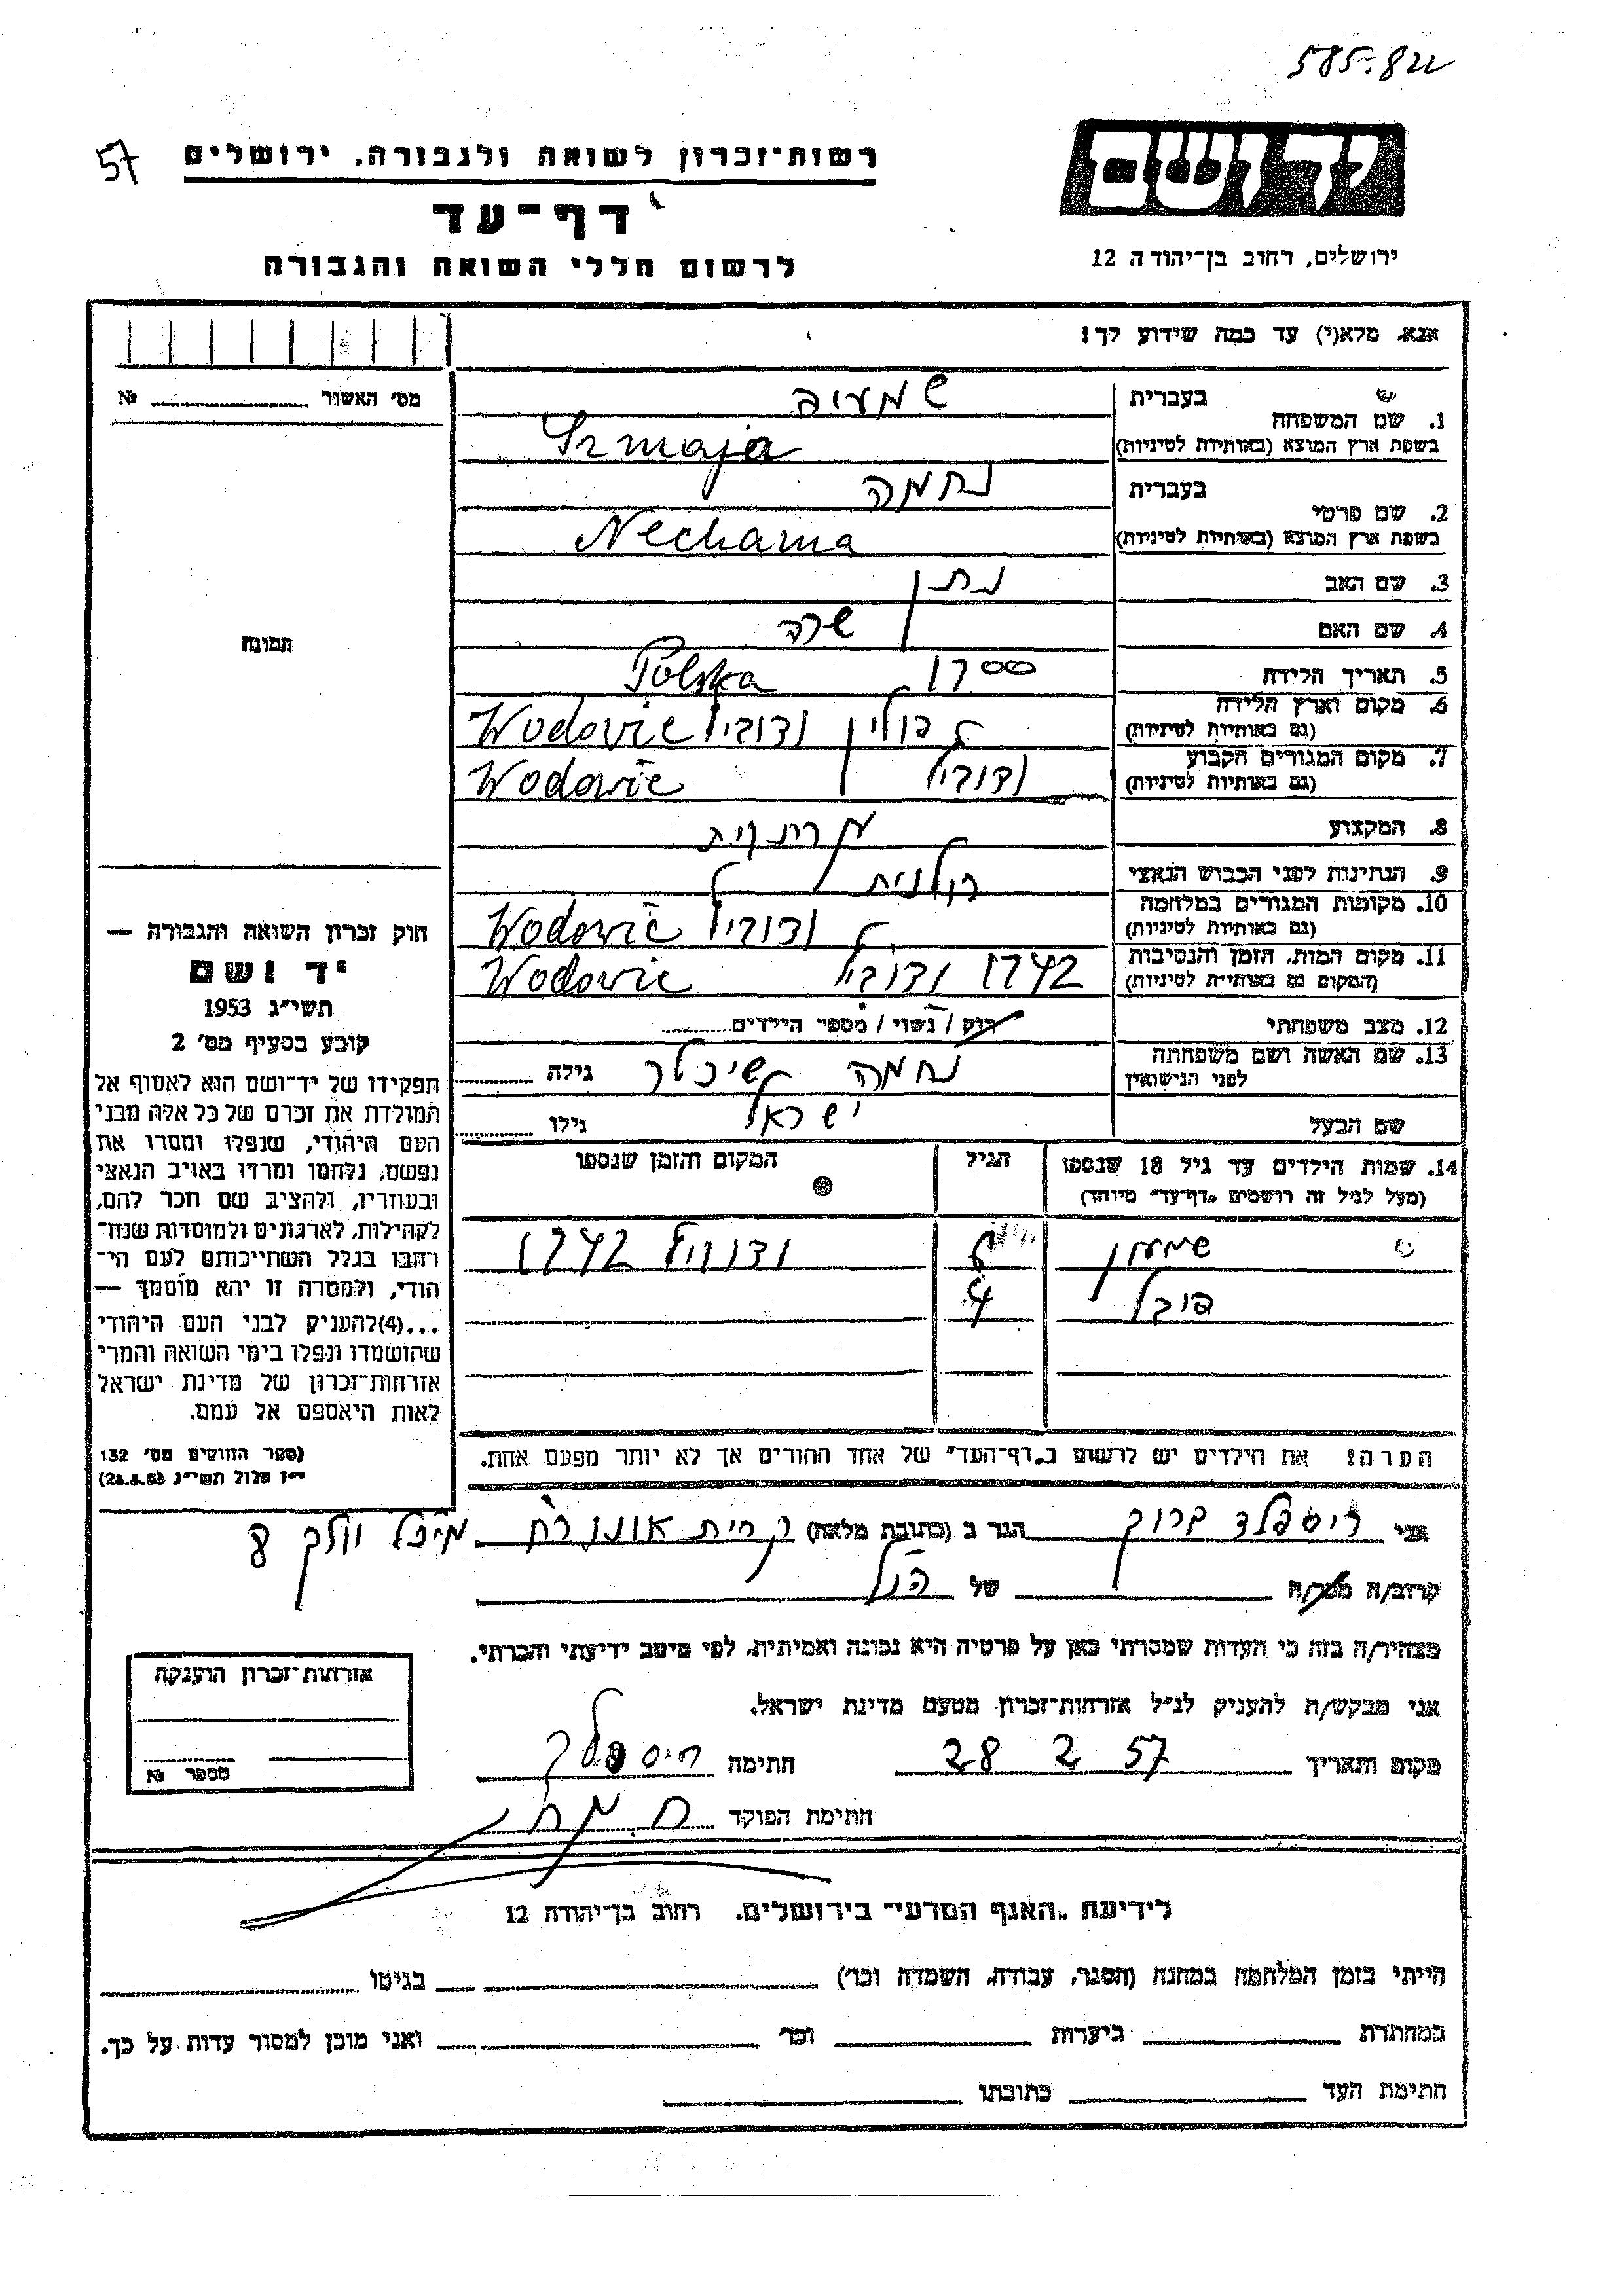 585.822
57
רשות־זכרון לשואה ולגבורה, ירושלים
יד ושם
דף־עד
לרשום חללי השואה והגבורה
ירושלים, רחוב בן־יהודה 12
אנא, מלא(י) עד כמה שידוע לך!
מס' האשור № 
1. שם המשפחה
בעברית שמעיה
בשפת ארץ המוצא (באותיות לטיניות) Szmaja
2. שם פרטי
בעברית נחמה
בשפת ארץ המוצא (באותיות לטיניות) Nechama
3. שם האב נתן
4. שם האם שרה
5. תאריך הלידה 1900 Polska
6. מקום וארץ הלידה (גם באותיות לטיניות) פולין Wodovic
7. מקום המגורים הקבוע (גם באותיות לטיניות) Wodovic
8. המקצוע
9. הנתינות לפני הכבוש הנאצי פולנית
10. מקומות המגורים במלחמה (גם באותיות לטיניות) Wodovic
11. מקום המות, הזמן והנסיבות (המקום גם באותיות לטיניות) 1942 Wodovic
12. מצב משפחתי רוק / נשוי / מספר הילדים
13. שם האשה ושם משפחתה לפני הנישואין נחמה גילה
שם הבעל ישראל גילו
תמונה
חוק זכרון השואה והגבורה —
יד ושם
תשי"ג 1953
קובע בסעיף מס' 2
תפקידו של יד־ושם הוא לאסוף אל
המולדת את זכרם של כל אלה מבני
העם היהודי, שנפלו ומסרו את
נפשם, נלחמו ומרדו באויב הנאצי
ובעוזריו, ולהציב שם וזכר להם,
לקהילות, לארגונים ולמוסדות שנח־
רבו בגלל השתייכותם לעם הי־
הודי, ולמטרה זו יהא מוסמך —
...(4) להעניק לבני העם היהודי
שהושמדו ונפלו בימי השואה והמרי
אזרחות־זכרון של מדינת ישראל
לאות היאספם אל עמם.
(ספר החוקים מס' 132
י"ז אלול תשי"ג 28.8.53)
14. שמות הילדים עד גיל 18 שנספו
(מעל לגיל זה רושמים „דף־עד" מיוחד)
הגיל
המקום והזמן שנספו
שמעון 1942
4
הערה! את הילדים יש לרשום ב„דף־העד" של אחד ההורים אך לא יותר מפעם אחת.
אני ברוך הגר ב (כתובת מלאה) קרית אונו
קרוב/ה מכר/ה של הנ"ל
מצהיר/ה בזה כי העדות שמסרתי כאן על פרטיה היא נכונה ואמיתית, לפי מיטב ידיעתי והכרתי.
אני מבקש/ת להעניק לנ"ל אזרחות־זכרון מטעם מדינת ישראל.
מקום ותאריך 28 2 57 חתימה
חתימת הפוקד
אזרחות־זכרון הוענקה
מספר №
לידיעת „האגף המדעי" בירושלים. רחוב בן־יהודה 12
הייתי בזמן המלחמה במחנה (הסגר, עבודה, השמדה וכו') בגיטו
במחתרת ביערות וכו' ואני מוכן למסור עדות על כך.
חתימת העד כתובתו